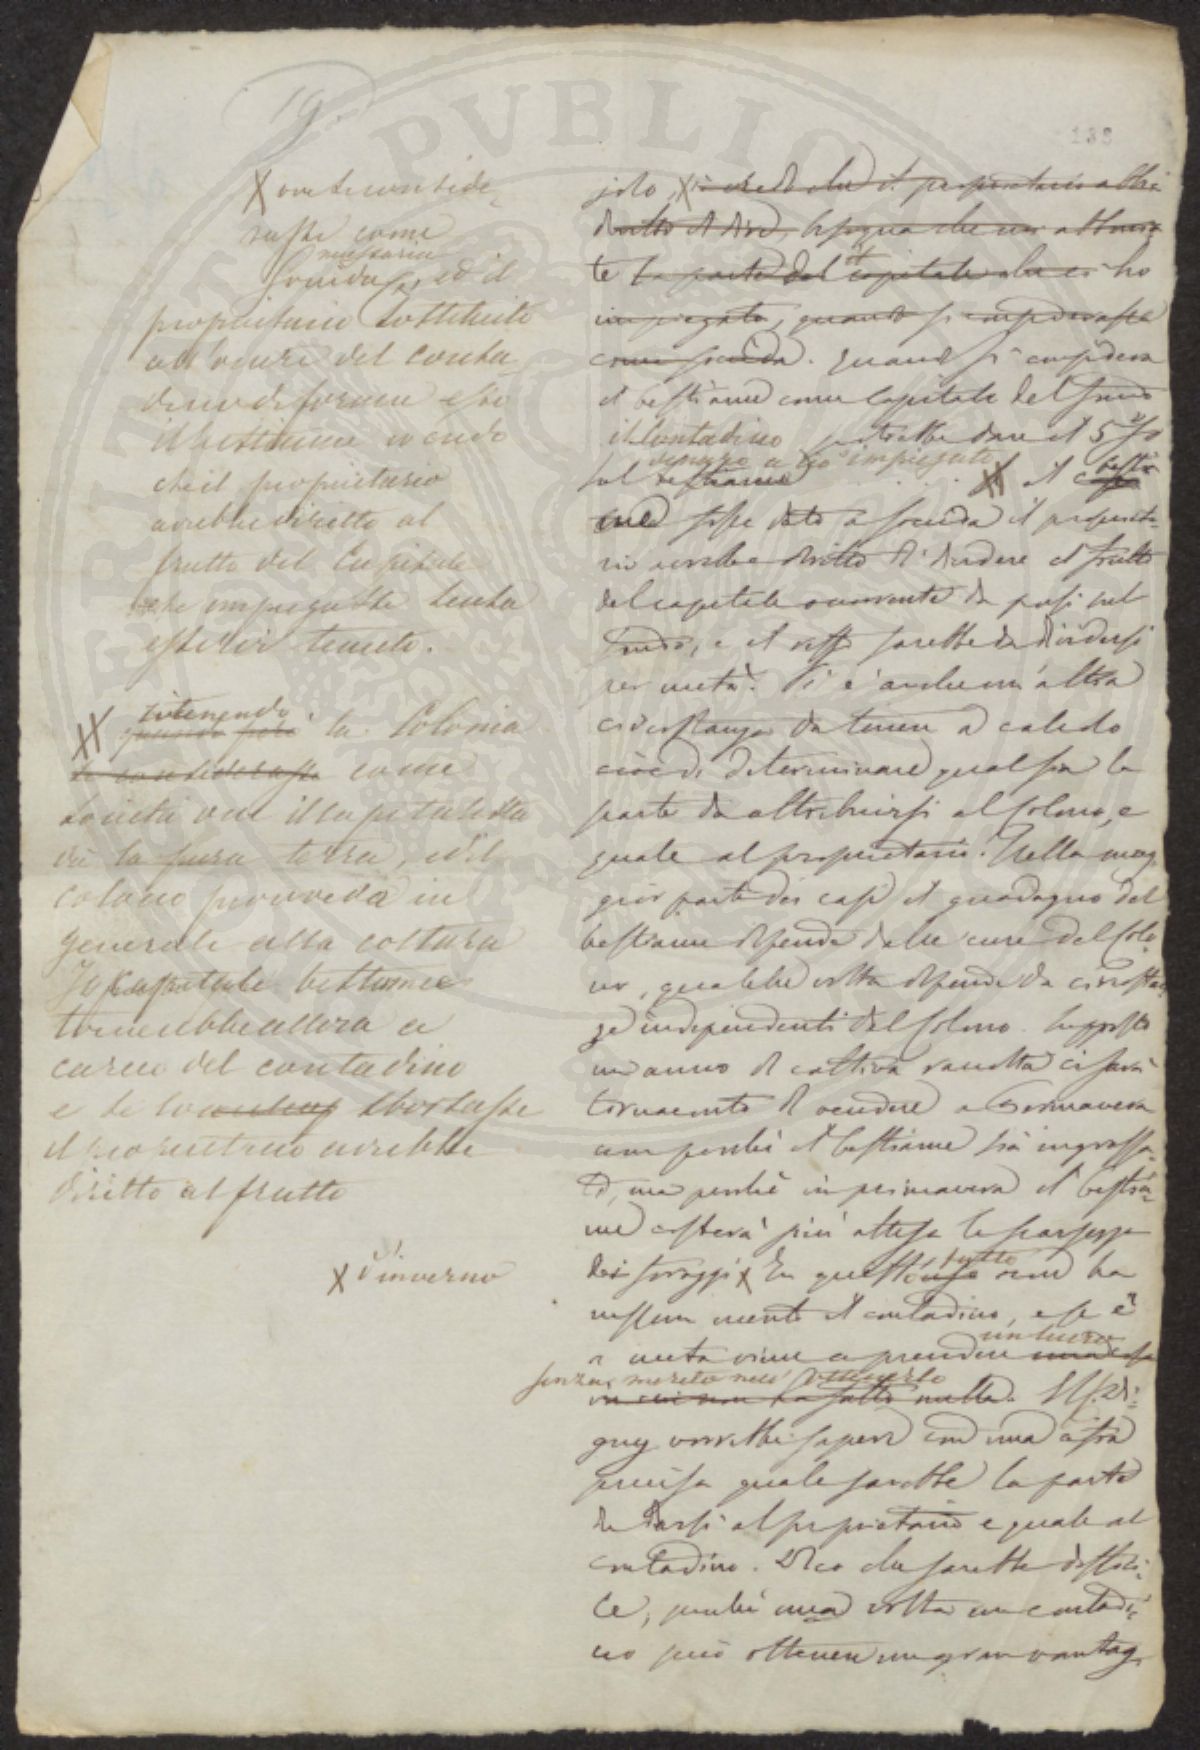 19.
138
X ove si conside-
rasse come
necessaria
soccida, ed il
proprietario sostituito
all'onere del conta
dino di fornire esso
il bestiame credo
che il proprietario
avrebbe diritto al
frutto del Capitale
che impiegasse senza
esservi tenuto.
XX ritenendo
quando però la Colonia
si considerasse come
società ove il capitalista
dà la pura terra, ed il
colono provveda in
generale alla coltura
Il capitale bestiame
tornerebbe allora a
carico del contadino
e se lo sborsasse
il proprietario avrebbe
diritto al frutto
X d'inverno
solo, X credo che il proprietario abbia
diritto di dire, bisogna che
te la parte del capitale che ci ho
impiegato, quando si considerasse
come soccida. Quando si considera
il bestiame come Capitale del fondo
il Contadino potrebbe dare il 5 %
denaro a ciò impiegato
sul bestiame XX il bestia
me fosse dato a soccida il proprieta-
rio avrebbe diritto di dividere il frutto
del capitale occorrente da porsi sul
fondo, e il resto sarebbe da dividersi
per metà. Vi è anche un'altra
circostanza da tenere a calcolo
cioè di determinare qual sia la
parte da attribuirsi al Colono, e
quale al proprietario. Nella mag
gior parte dei casi il guadagno del
bestiame dipende dalle cure del Colo-
no, qualche volta dipende da circostan
ze indipendenti dal Colono. Supposto
un anno di cattiva raccolta ci sarà
tornaconto di vendere a Primavera
non perché il bestiame sia ingrassa-
to, ma perché in primavera il bestia-
me costerà più attesa la scarsezza
dei foraggi X In questo tutto non ha
nessun merito il contadino, e se è
un lucro
a metà viene a prendere una cosa
senza merito nell'ottenerlo
in cui non ha fatto nulla. Il S. Di-
guy vorrebbe sapere con una cifra
precisa quale sarebbe la parte
da darsi al proprietario e quale al
contadino. Dico che sarebbe diffici-
le, perché una volta un contadi-
no può ottenere un gran vantag